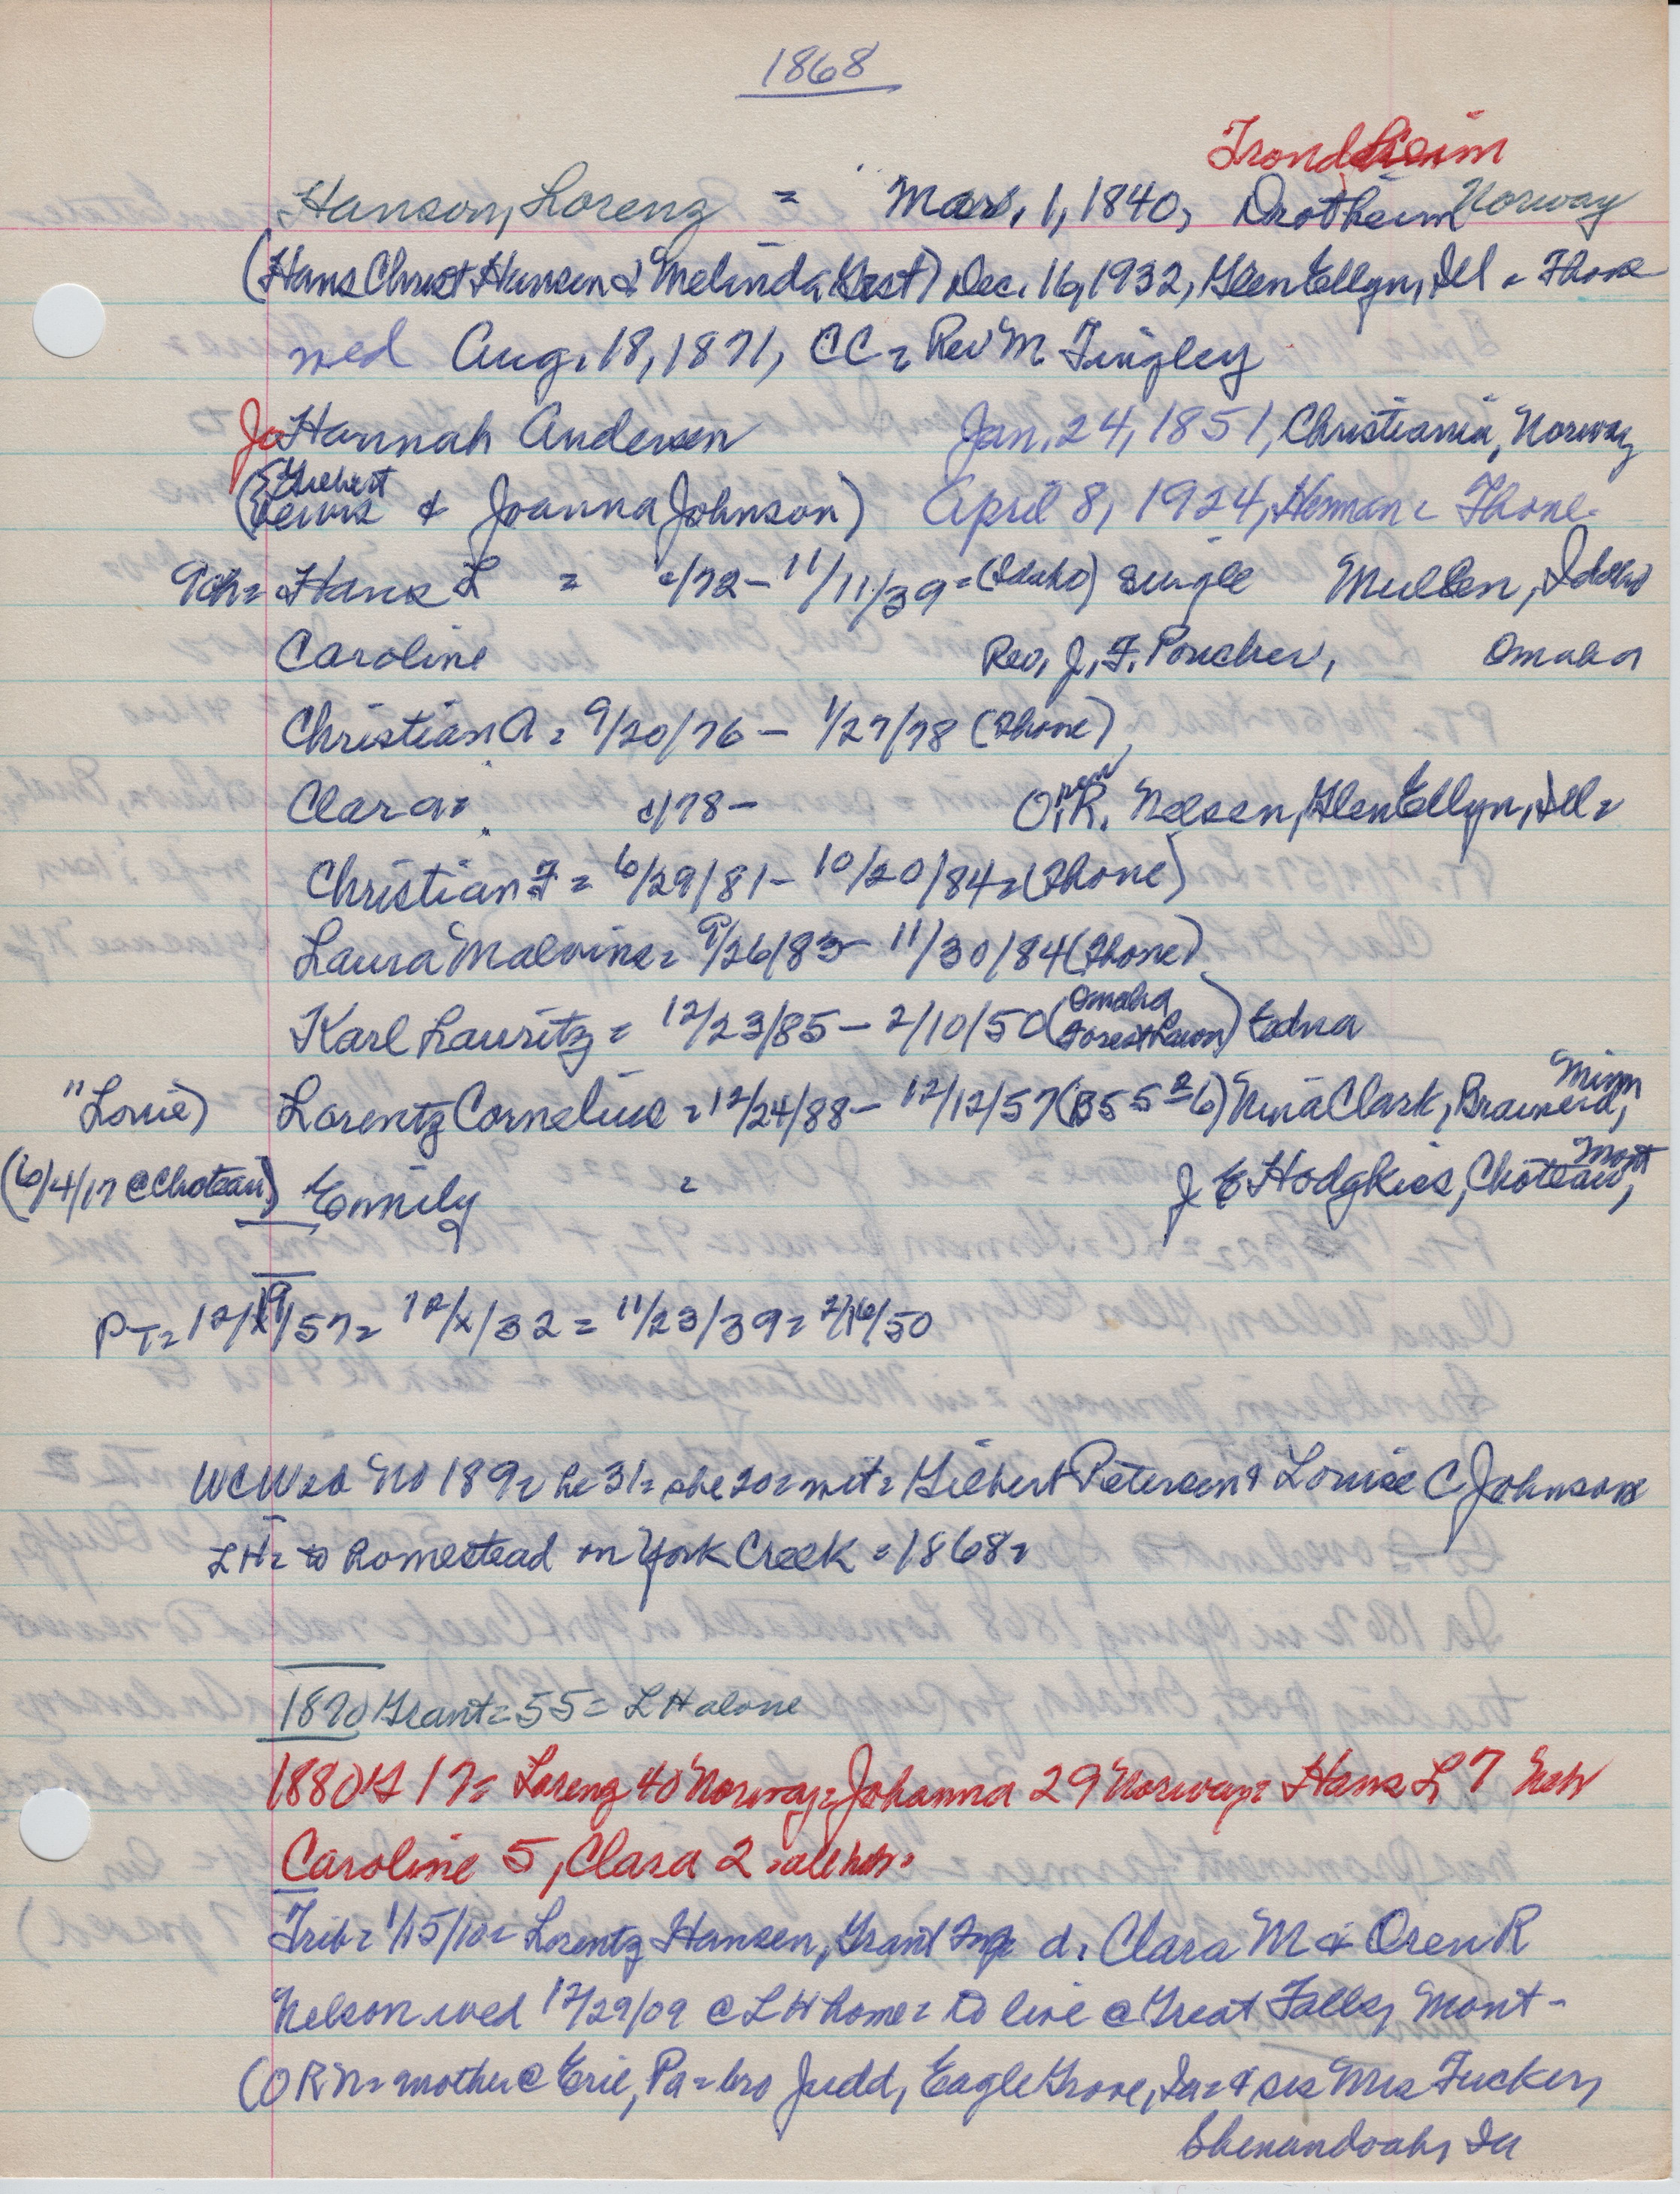 1868
Trondheim
Hanson, Lorenz = Mar. 1, 1840, Drotheim Norway
(Hans Christ Hansen & Melinda Grst) Dec. 16, 1932, Glen Ellyn, Ill = Thone
wed Aug. 18, 1871, CC = Rev M Tingley
JoHannah Andersen Jan. 24, 1851, Christiania, Norway
Gilbert
(Lewis & Joanna Johnson) April 8, 1924, Herman = Thone
9ch = Hans L = c/72 - 11/11/39 = (Idaho) single Mullen, Idaho
Caroline Rev. J. F. Poucher, Omaha
Christian A = 9/20/76 - 1/27/78 (Thone)
Clara = c/78 - O.R. Nelsen, Glen Ellyn, Ill =
Christian F = 6/29/81 - 10/20/84 = (Thone)
Laura Malvina = 9/26/83 - 11/30/84 (Thone)
Karl Lauritz = 12/23/85 - 2/10/50 (Omaha Forest Lawn) Edna
"Louie) Lorentz Cornelius = 12/24/88 - 12/12/57 (B55 = 26) Nina Clark, Brainerd, Minn
(6/4/17 @ Choteau) Emily = J E Hodgkiss, Choteau, Mont
PT = 12/19/57 = 12/x/32 = 11/23/39 = 2/16/50
WCWed No 189 = he 31 = she 20 = wit = Gilbert Petersen & Louise C Johnson
LH = to Homestead on York Creek = 1868 =
1870 Grant = 55 = LH alone
1880 G 17 = Lorenz 40 Norway = Johanna 29 Norway = Hans L 7 Neb
Caroline 5, Clara 2 = all Neb.
Trib = 1/15/10 = Lorentz Hansen, Grant Twp d. Clara M & Oren R
Nelson wed 12/29/09 @ LH home = to live @ Great Falls, Mont -
(ORN = mother @ Erie, Pa = bro Judd, Eagle Grove, Ia = & sis Mrs Tucker,
Shenandoah, Ia